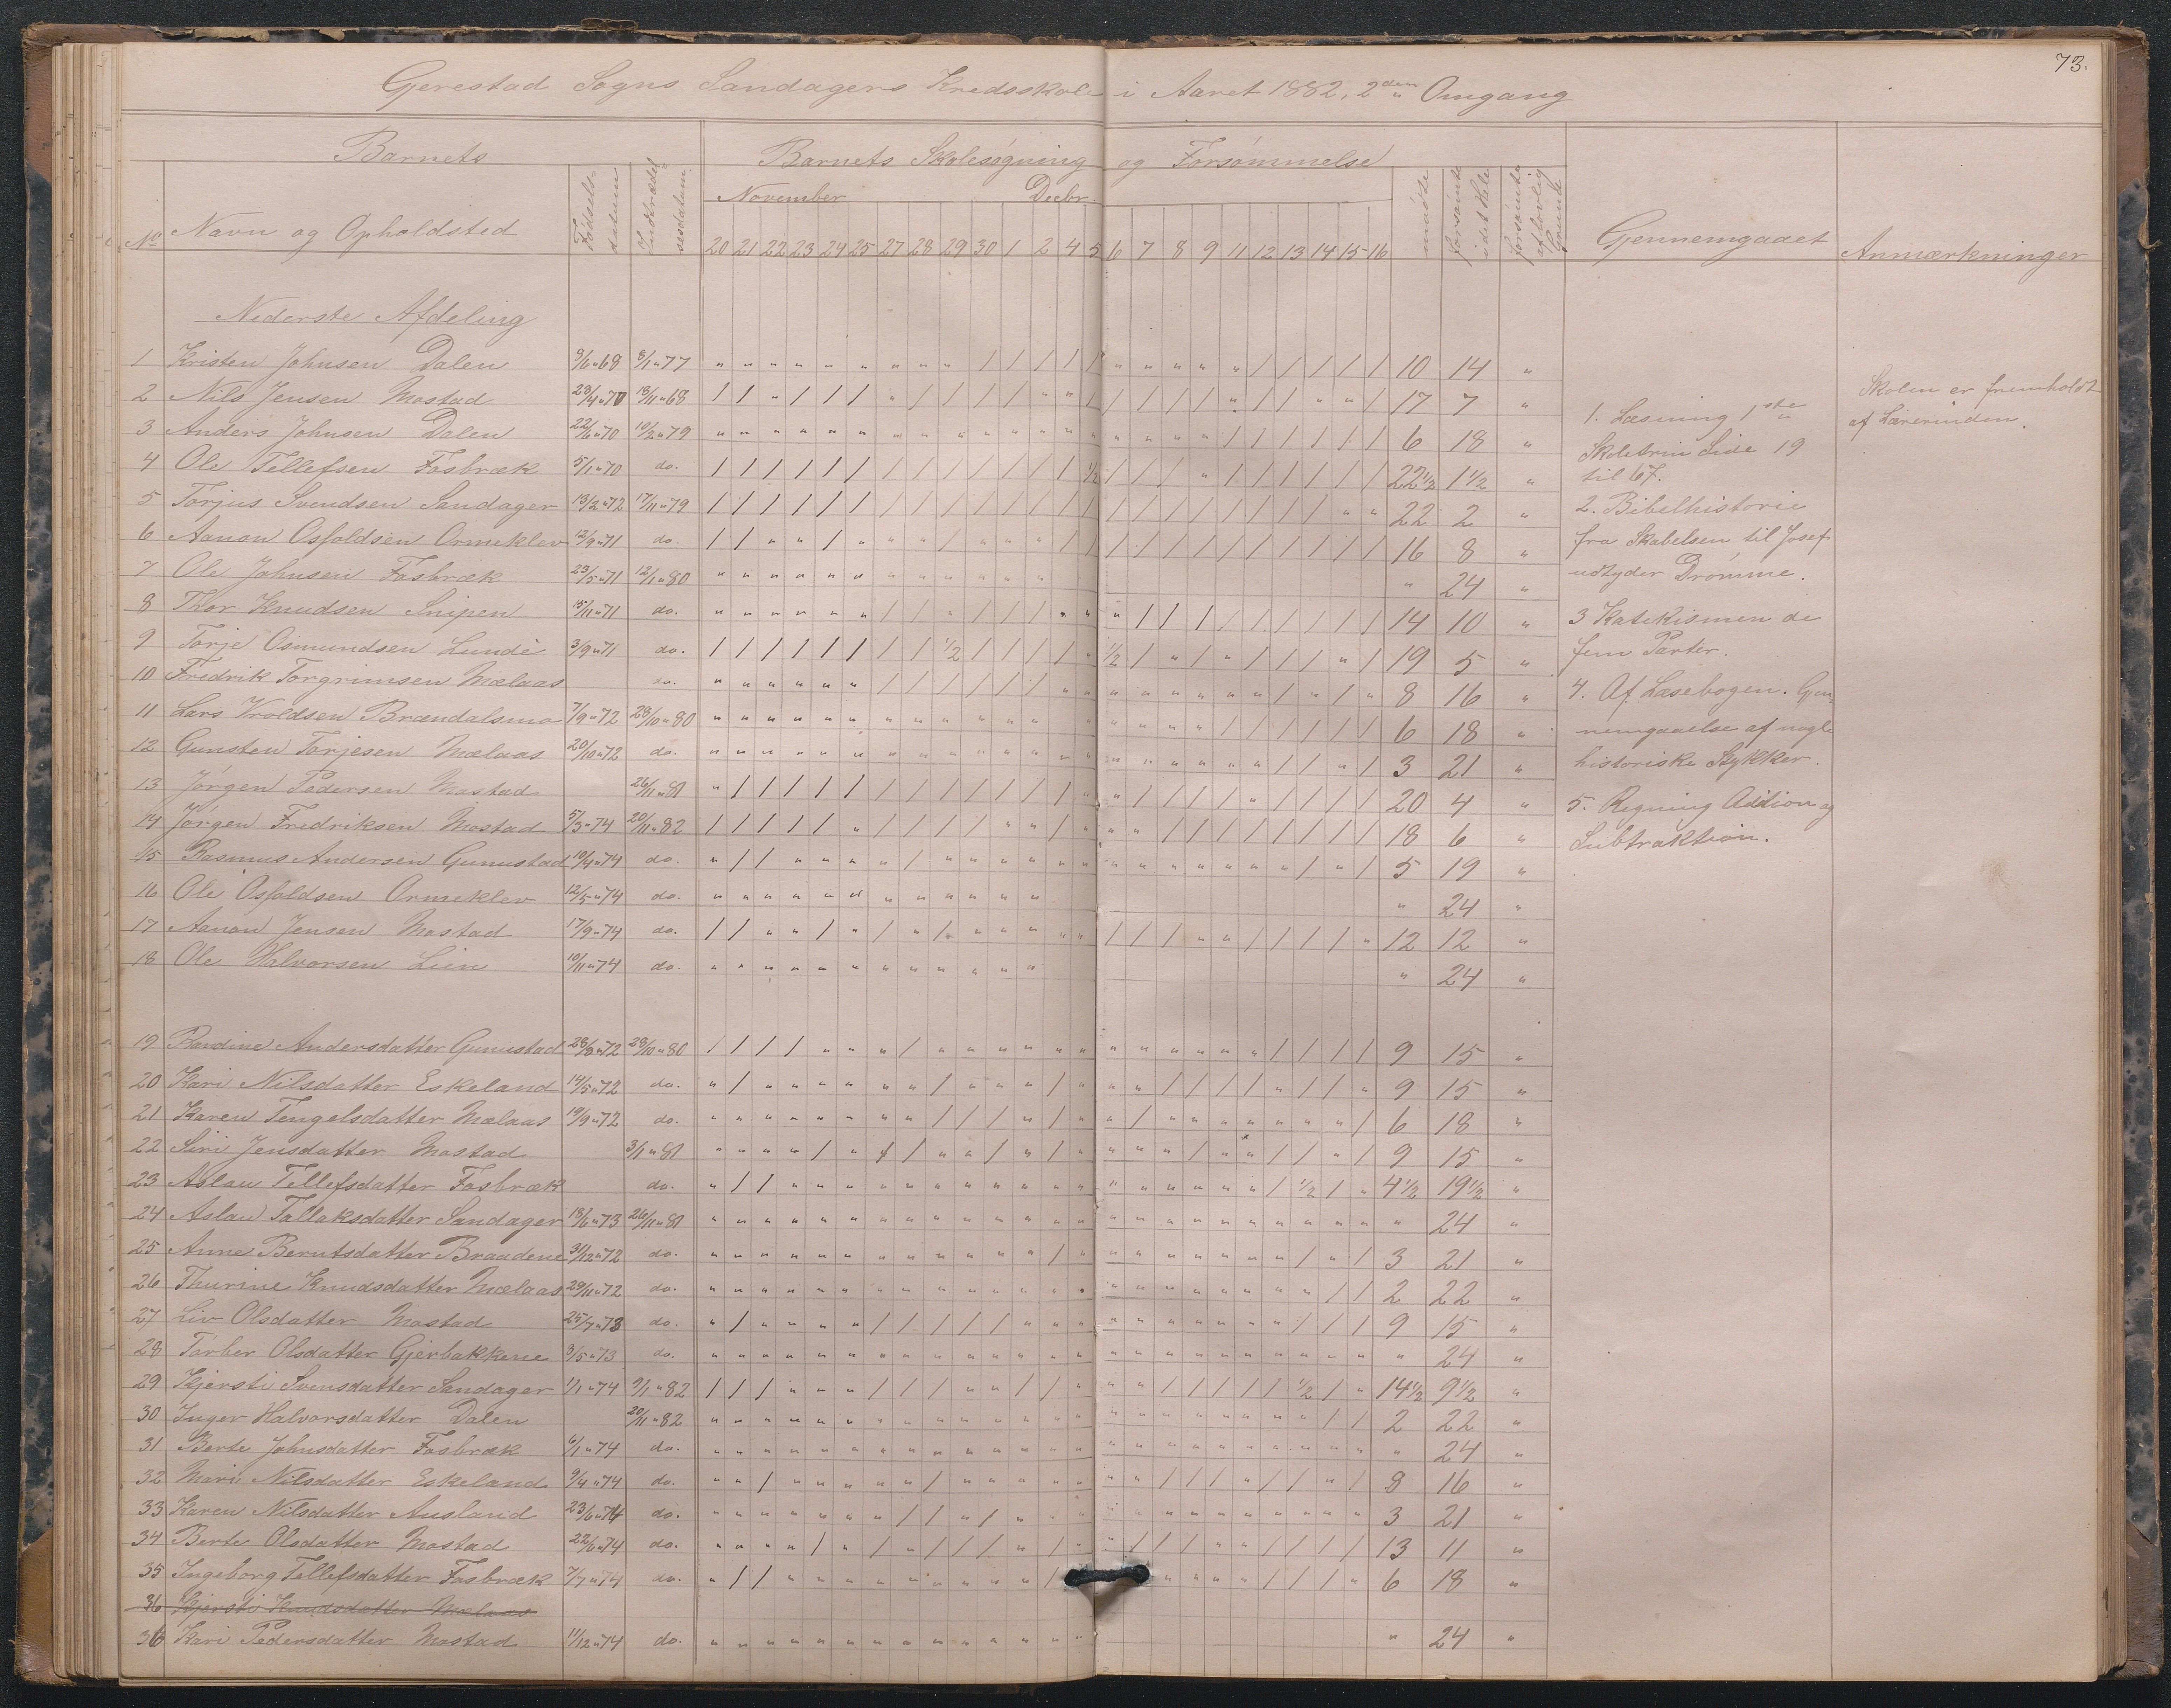 73.
Gerestad Sogns Sandagers Kredsskole i Aaret 1882, 2den Omgang
Barnets
Barnets Skolesøgning og Forsømmelse
November Decbr.
No Navn og Opholdsted Fødselsdatum Indtrædelsesdatum 20 21 22 23 24 25 27 28 29 30 1 2 4 5 6 7 8 9 11 12 13 14 15 16 mødte forsømte idet Hele forsømte af lovlig Grunde Gjennemgaaet Anmærkninger
Nederste Afdeling
1 Kristen Johnsen Dalen 9/6 " 69 8/1 " 77 10 14 "
2 Nils Jensen Mostad 28/4 " 70 18/11 " 68 17 7 "
3 Anders Johnsen Dalen 22/6 " 70 10/2 " 79 6 18 "
4 Ole Tellefsen Fosbræk 5/1 " 70 do. 22 1/2 1 1/2 "
5 Torjus Svendsen Sandager 13/2 " 72 17/11 " 79 22 2 "
6 Aanon Osfoldsen Ormeklev 12/9 " 71 do. 16 8 "
7 Ole Johnsen Fosbræk 23/5 " 71 12/1 " 80 " 24 "
8 Thor Knudsen Snipen 15/11 " 71 do. 14 10 "
9 Torje Osmundsen Lunde 3/9 " 71 do. 19 5 "
10 Fredrik Torgrimsen Mælaas do. 8 16 "
11 Lars Vroldsen Brændalsmo 7/9 " 72 28/10 " 80 6 18 "
12 Gunsten Torjesen Mælaas 20/10 " 72 do. 3 21 "
13 Jørgen Pedersen Mostad 26/11 " 81 20 4 "
14 Jørgen Fredriksen Mostad 5/3 " 74 20/11 " 82 18 6 "
15 Rasmus Andersen Gunustad 10/4 " 74 do. 5 19 "
16 Ole Osfoldsen Ormeklev 12/5 " 74 do. " 24 "
17 Aanon Jensen Mostad 17/9 " 74 do. 12 12 "
18 Ole Halvorsen Lien 10/11 " 74 do. " 24 "
19 Randine Andersdatter Gunustad 28/8 " 72 28/10 " 80 9 15 "
20 Kari Nilsdatter Eskeland 14/5 " 72 do. 9 15 "
21 Karen Tengelsdatter Mælaas 19/9 " 72 do. 6 18 "
22 Siri Jensdatter Mostad 3/1 " 81 9 15 "
23 Aslau Tellefsdatter Fosbræk do. 4 1/2 19 1/2 "
24 Aslau Tallaksdatter Sandager 18/6 " 73 26/11 " 81 " 24 "
25 Anne Berntsdatter Braadene 31/12 " 72 do. 3 21 "
26 Thurine Knudsdatter Mælaas 29/11 " 72 do. 2 22 "
27 Liv Olsdatter Mostad 25/7 " 73 do. 9 15 "
28 Tørber Olsdatter Gjerbakkene 3/5 " 73 do. " 24 "
29 Kjersti Svensdatter Sandager 1/1 " 74 9/1 " 82 14 1/2 9 1/2 "
30 Inger Halvorsdatter Dalen 20/11 " 82 2 22 "
31 Berte Johnsdatter Fosbræk 6/1 " 74 do. " 24 "
32 Mari Nilsdatter Eskeland 9/4 " 74 do. 8 16 "
33 Karen Nilsdatter Ausland 23/6 " 74 do. 3 21 "
34 Berte Olsdatter Mostad 22/6 " 74 do. 13 11 "
35 Ingeborg Tellefsdatter Fosbræk 7/7 " 74 do. 6 18 "
36 Kjersti Knudsdatter Mælaas
36 Kari Pedersdatter Mostad 11/12 " 74 do. " 24 "
1. Læsning 1ste
Skoletrin Side 19
til 67.
2. Bibelhistorie
fra Skabelsen til Josef
udtyder Drømme.
3 Katekismen de
fem Parter.
4. Af Læsebogen. Gjen-
nemgaaelse af nogle
historiske Stykker.
5. Regning Addion og
Subtraktion.
Skolen er fremholdt
af Lærerinden.